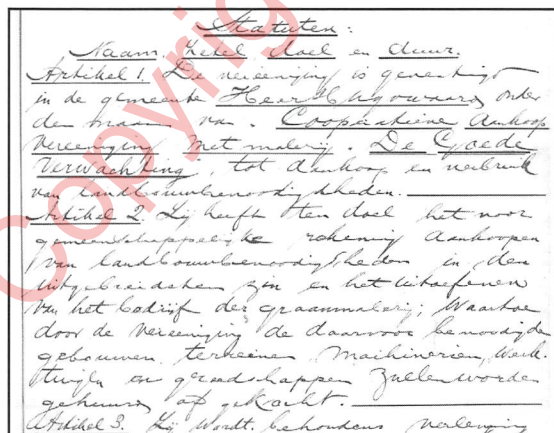 Statuten:
Naam, Zetel doel en duur.
Artikel 1. De vereeniging is gevestigd
in de gemeente Heer Hugowaard onder
den naam van. Coöperatieve Aankoop
vereeniging met malerij. De Goede
Verwachting, tot aankoop en verbruik
van landbouwbenoodigdheden.
Artikel 2. Zij heeft ten doel het voor
gemeenschappelijke rekening aankoopen
van landbouwbenoodigdheden in den
uitgebreidsten zin en het uitoefenen
van het bedrijf der graanmalerij; waartoe
door de vereeniging de daarvoor benoodigde
gebouwen, terreinen, machinerieën, werk-
tuigen en gereedschappen zullen worden
gehuurd of gekocht.
Artikel 3. Zij wordt, behoudens verlenging
Copyrig